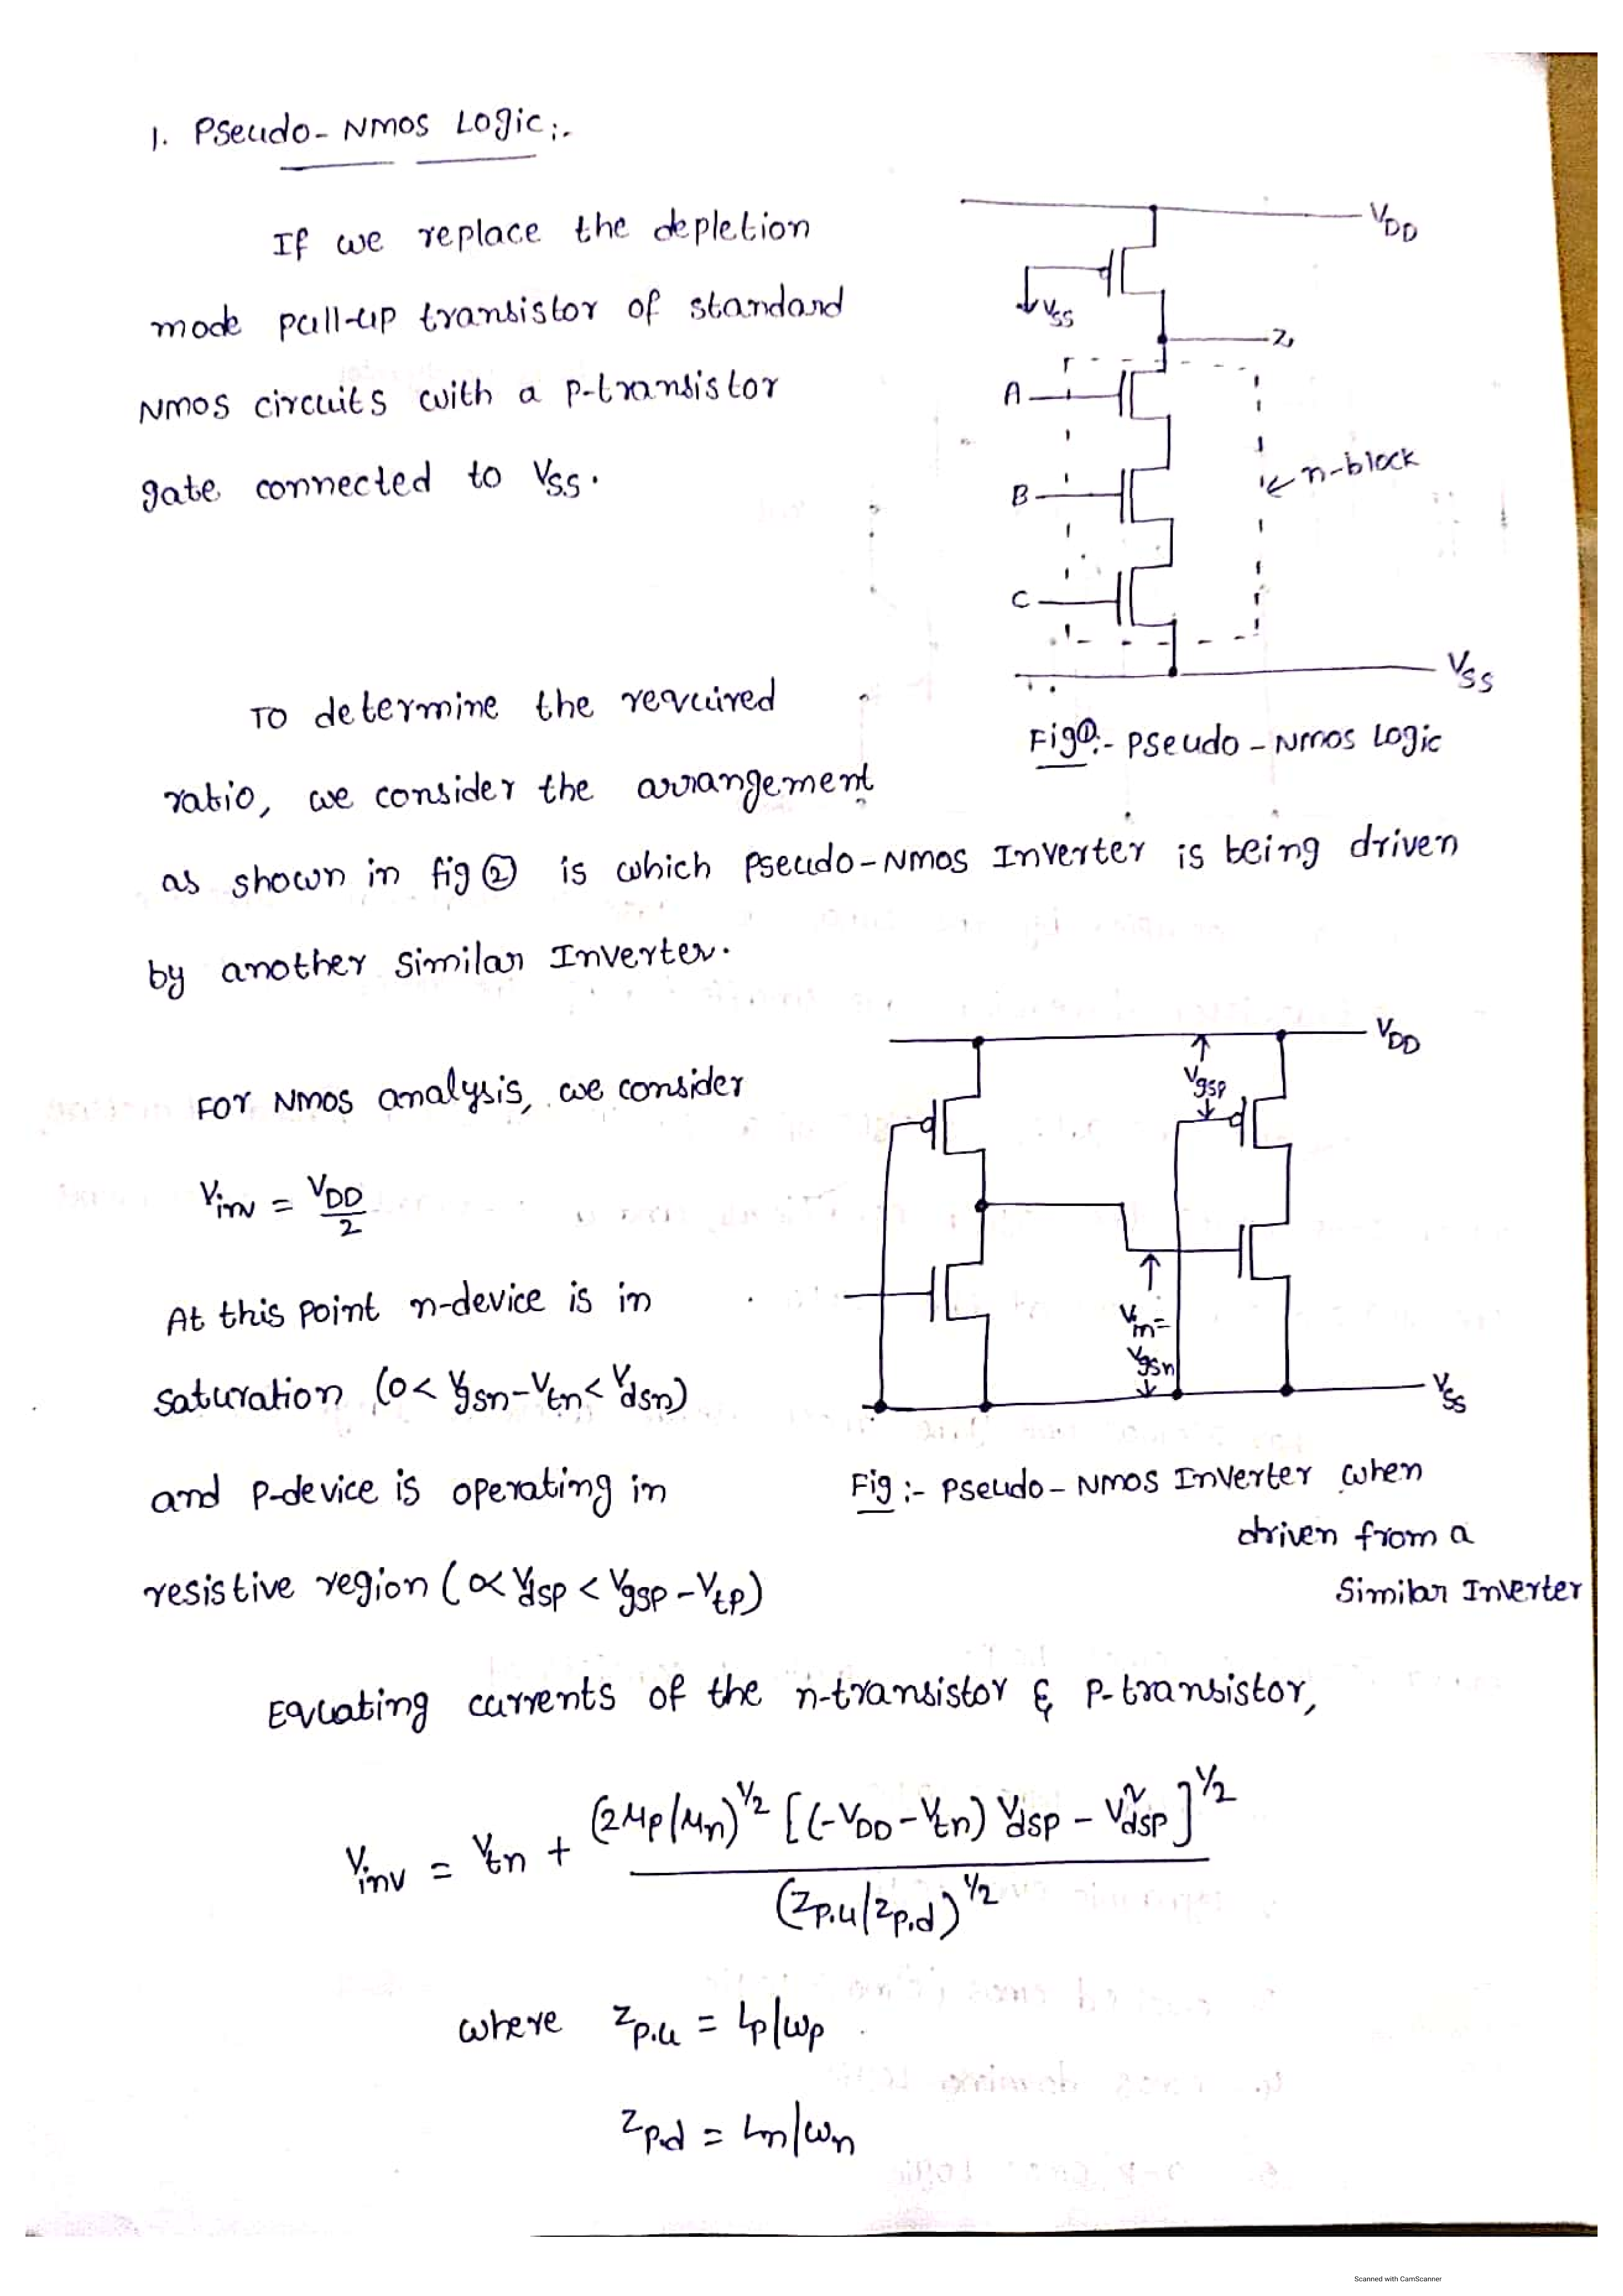 1. Pseudo-NMOS Logic:-
If we replace the depletion
mode pull-up transistor of standard
NMOS circuits with a p-transistor
gate connected to VSS.
VDD
VSS
Z
A
B
C
n-block
VSS
Fig①:- Pseudo-NMOS Logic
To determine the required
ratio, we consider the arrangement
as shown in fig ② is which Pseudo-NMOS Inverter is being driven
by another similar Inverter.
For NMOS analysis, we consider
Vinv = VDD/2
At this point n-device is in
saturation (0< Vgsn-Vtn< Vdsn)
and P-device is operating in
resistive region (∝ Vdsp < Vgsp -Vtp)
VDD
Vgsp
Vin=
Vgsn
VSS
Fig :- Pseudo-NMOS Inverter when
driven from a
Similar Inverter
Equating currents of the n-transistor & P-transistor,
Vinv = Vtn + (2μp/μn)^1/2 [(-VDD-Vtn) Vdsp - V²dsp]^1/2
(Zp.u/Zp.d)^1/2
where Zp.u = Lp/wp
Zp.d = Ln/wn
Scanned with CamScanner